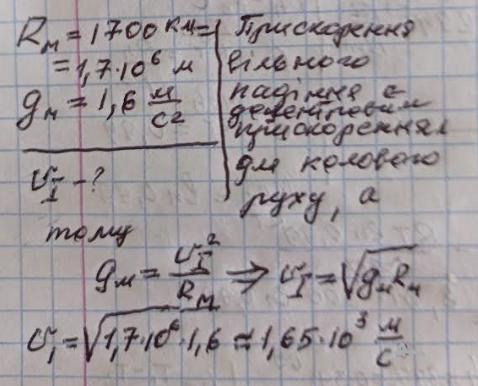 Rм = 1700 км =
= 1,7·10⁶ м
gм = 1,6 м/с²
υI - ?
Прискорення
вільного
падіння є
доцентровим
прискоренням
для колового
руху, а
тому
gм = υI²/Rм ⇒ υI = √gмRм
υ₁ = √1,7·10⁶·1,6 ≈ 1,65·10³ м/с